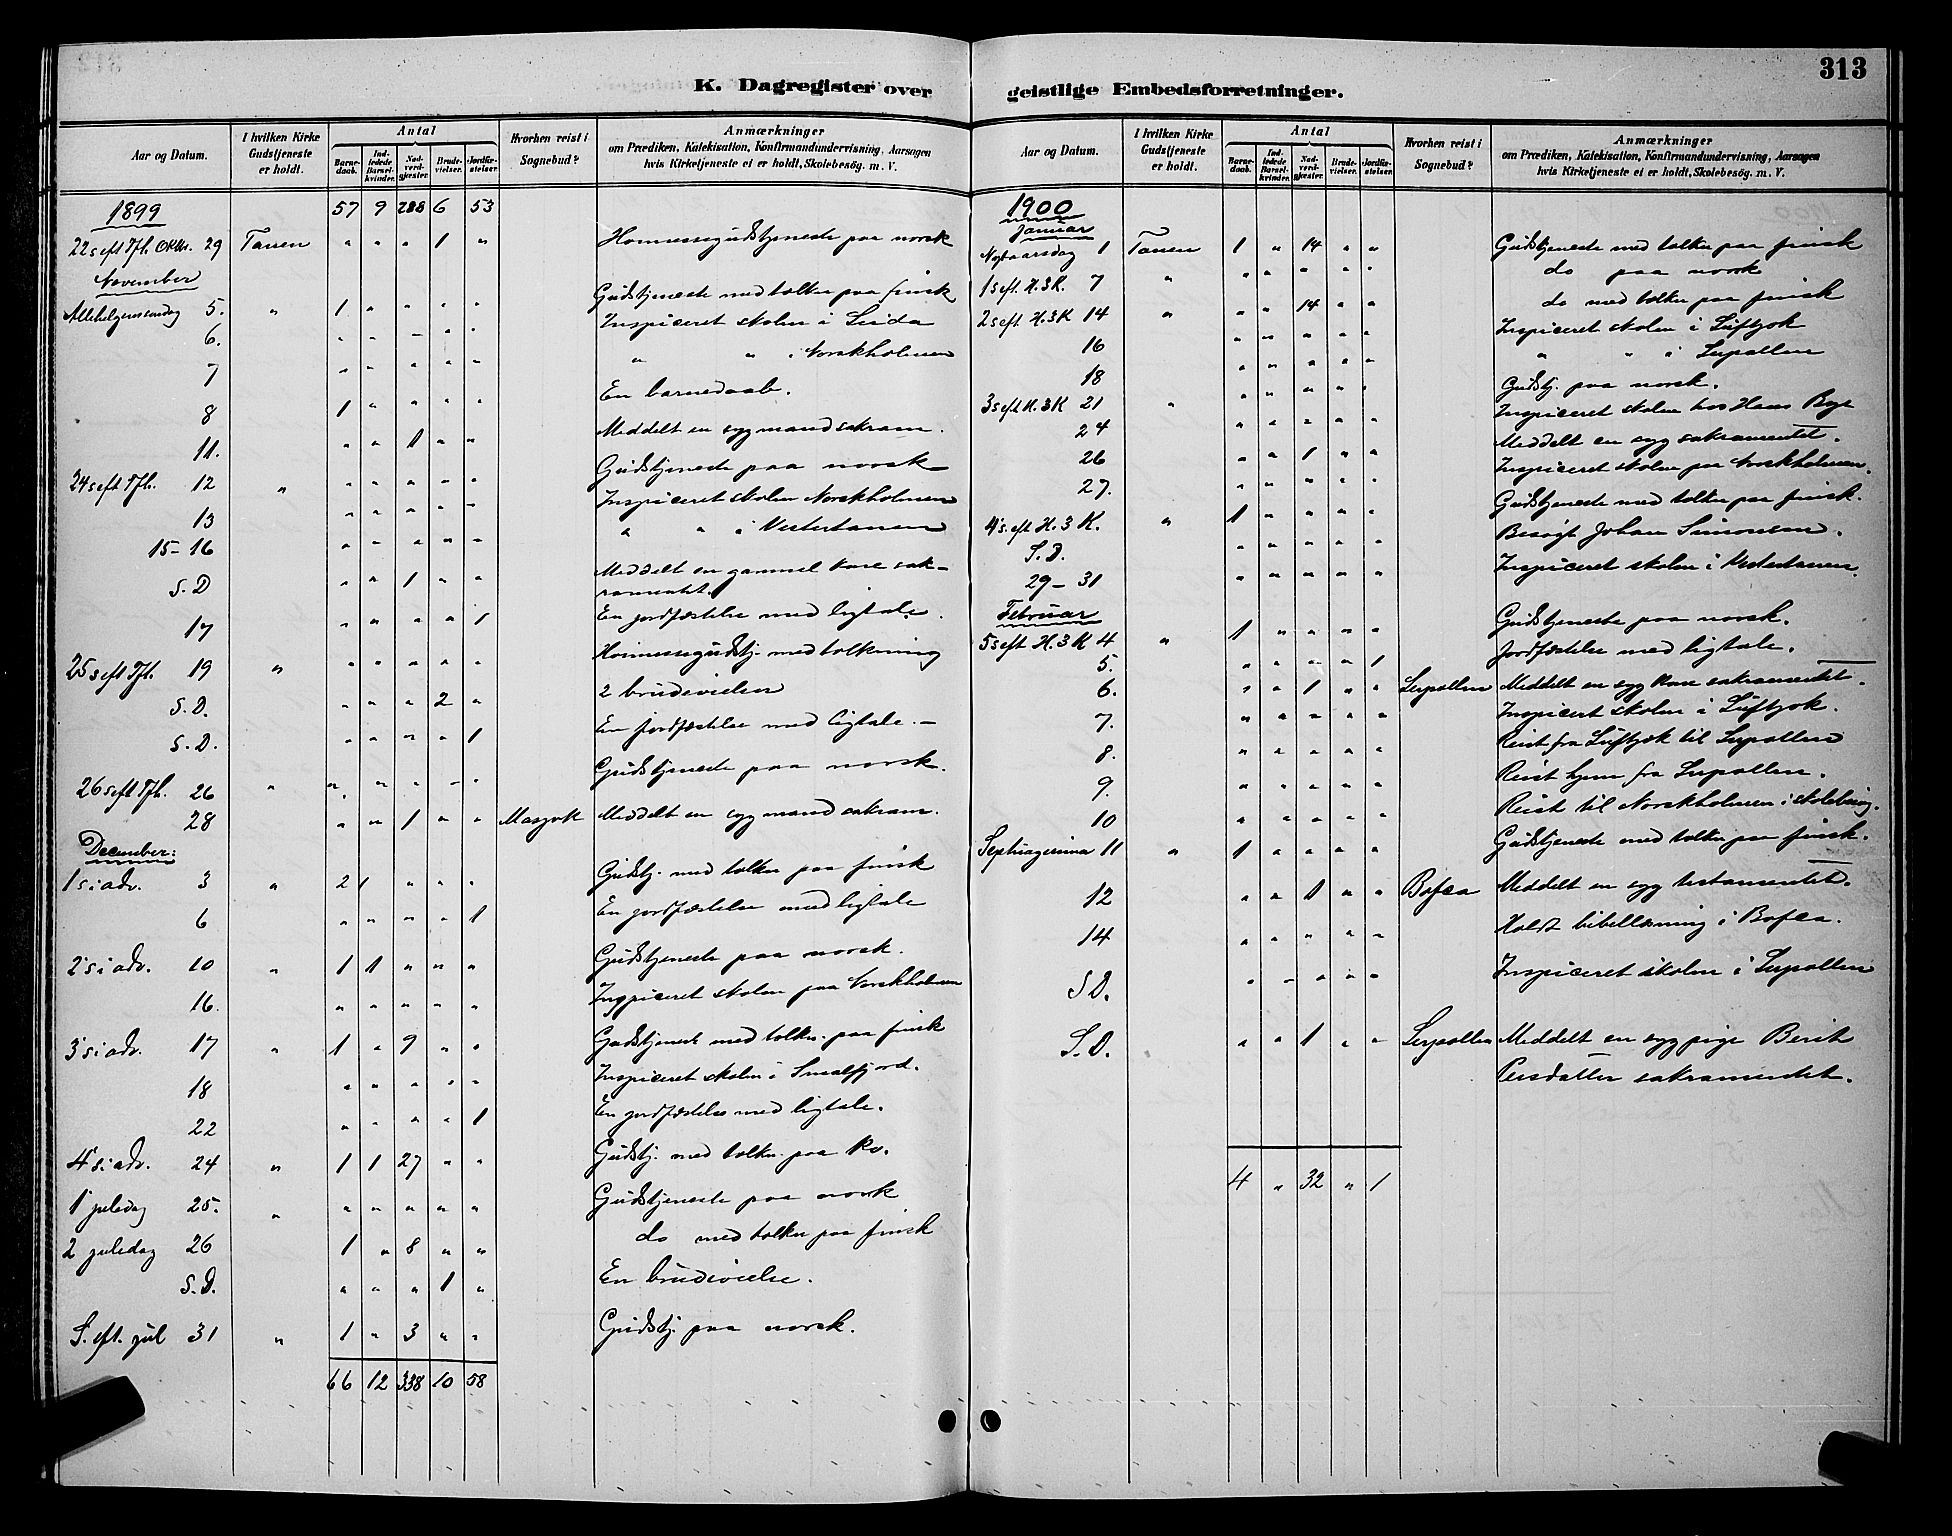 313
K. Dagregister over geistlige Embedsforretninger.
Aar og Datum. I hvilken Kirke Gudstjeneste er holdt. Antal Barnedaab. Indledede Barselkvinder. Nadverdgjester. Brudevielser. Jordfæstelser. Hvorhen reist i Sognebud? Anmærkninger om Prædiken, Katekisation, Konfirmandundervisning, Aarsagen hvis Kirketjeneste ei er holdt, Skolebesög. m. V.
1899 57 9 288 6 53
22 s eft Tfh. Oktbr. 29 Tanen " " " 1 " Høimessegudstjeneste paa norsk
November
Allehelgenssøndag 5. " 1 " " " " Gudstjeneste med tolker paa finsk
6. " " " " " Inspiceret skolen i Seida
7 " " " " " " " i Norskholmen
8 1 " " " " En barnedaab.
11. " " 1 " " Meddelt en syg mand sakram.
24 s eft Tfh. 12 " " " " " " Gudstjeneste paa norsk
13 " " " " " Inspiceret skolen Norskholmen
15-16 " " " " " " " i Vestertanen
S.D " " 1 " " Meddelt en gammel kone sak-
ramentet.
17 " " " " 1 En jordfæstelse med ligtale.
25 s eft Tfh. 19 " " " " " " Høimessegudstj. med tolkning
S.D. " " " 2 " 2 brudevielser
S.D. " " " " 1 En jordfæstelse med ligtale.-
26 s eft Tfh. 26 " " " " " " Gudstjeneste paa norsk.
28 " " 1 " " Masjok Meddelt en syg mand sakram.
December:
1 s i adv. 3 " 2 1 " " " Gudstj. med tolker paa finsk
6 " " " " 1 En jordfæstelse med ligtale
2 s i adv. 10 " 1 1 " " " Gudstjeneste paa norsk.
16. " " " " " Inspiceret skolen paa Norskholmen
3 s i adv. 17 " 1 " 9 " " Gudstjeneste med tolker paa finsk
18 " " " " " Inspiceret skolen i Smalfjord.
22 " " " " 1 En jordfæstelse med ligtale.
4 s i adv. 24 " 1 1 27 " " Gudstj. med tolker paa kv.
1 juledag 25. " " " " " " Gudstjeneste paa norsk
2 juledag 26 1 " 8 " " do med tolker paa finsk
S.D. " " " 1 " En brudevielse.
S. eft. jul 31 " 1 " 3 " " Gudstj. paa norsk.
66 12 338 10 58
Aar og Datum. I hvilken Kirke Gudstjeneste er holdt. Antal Barnedaab. Indledede Barselkvinder. Nadverdgjester. Brudevielser. Jordfæstelser. Hvorhen reist i Sognebud? Anmærkninger om Prædiken, Katekisation, Konfirmandundervisning, Aarsagen hvis Kirketjeneste ei er holdt, Skolebesög. m. V.
1900
Januar
Nytaarsdag 1 Tanen 1 " 14 " " Gudstjeneste med tolker paa finsk
1 s eft. H.3K. 7 " " " " " " do paa norsk
2 s eft. H.3K 14 " " " 14 " " do med tolker paa finsk
16 " " " " " Inspiceret skolen i Luftjok
18 " " " " " " " i Sirpollen
3 s eft H.3K 21 " " " " " " Gudstj. paa norsk.
24 " " " " " Inspiceret skolen hos Hans Bye
26 " " 1 " " Meddelt en syg sakramentet.
27. " " " " " Inspiceret skolen paa Norskholmen.
4 s. eft H.3K. " 1 " " " " Gudstjeneste med tolker paa finsk.
S.D. " " " " " Besøgt Johan Simonsen.
29-31 " " " " " Inspiceret skolen i Vestertanen.
Februar
5 s eft H.3K 4 " 1 " " " " Gudstjeneste paa norsk.
5. " " " " 1 Jordfæstelse med ligtale.
6. " " 1 " " Sirpollen Meddelt en syg kone sakramentet.
7. " " " " " Inspicert skolen i Luftjok.
8. " " " " " Reist fra Luftjok til Sirpollen
9. " " " " " Reist hjem fra Sirpollen.
10 " " " " " Reist til Norskholmen i skolebesøg.
Septuagesima 11 " 1 " " " " Gudstjeneste med tolker paa finsk.
12 " " 1 " " Bofea Meddelt en syg testamentet.
14 " " " " " Holdt bibellæsning i Bofea.
SD. " " " " " Inspiceret skolen i Sirpollen
S.D. " " 1 " " Sirpollen Meddelt en syg pige Berit
Persdatter sakramentet.
4 " 32 " 1